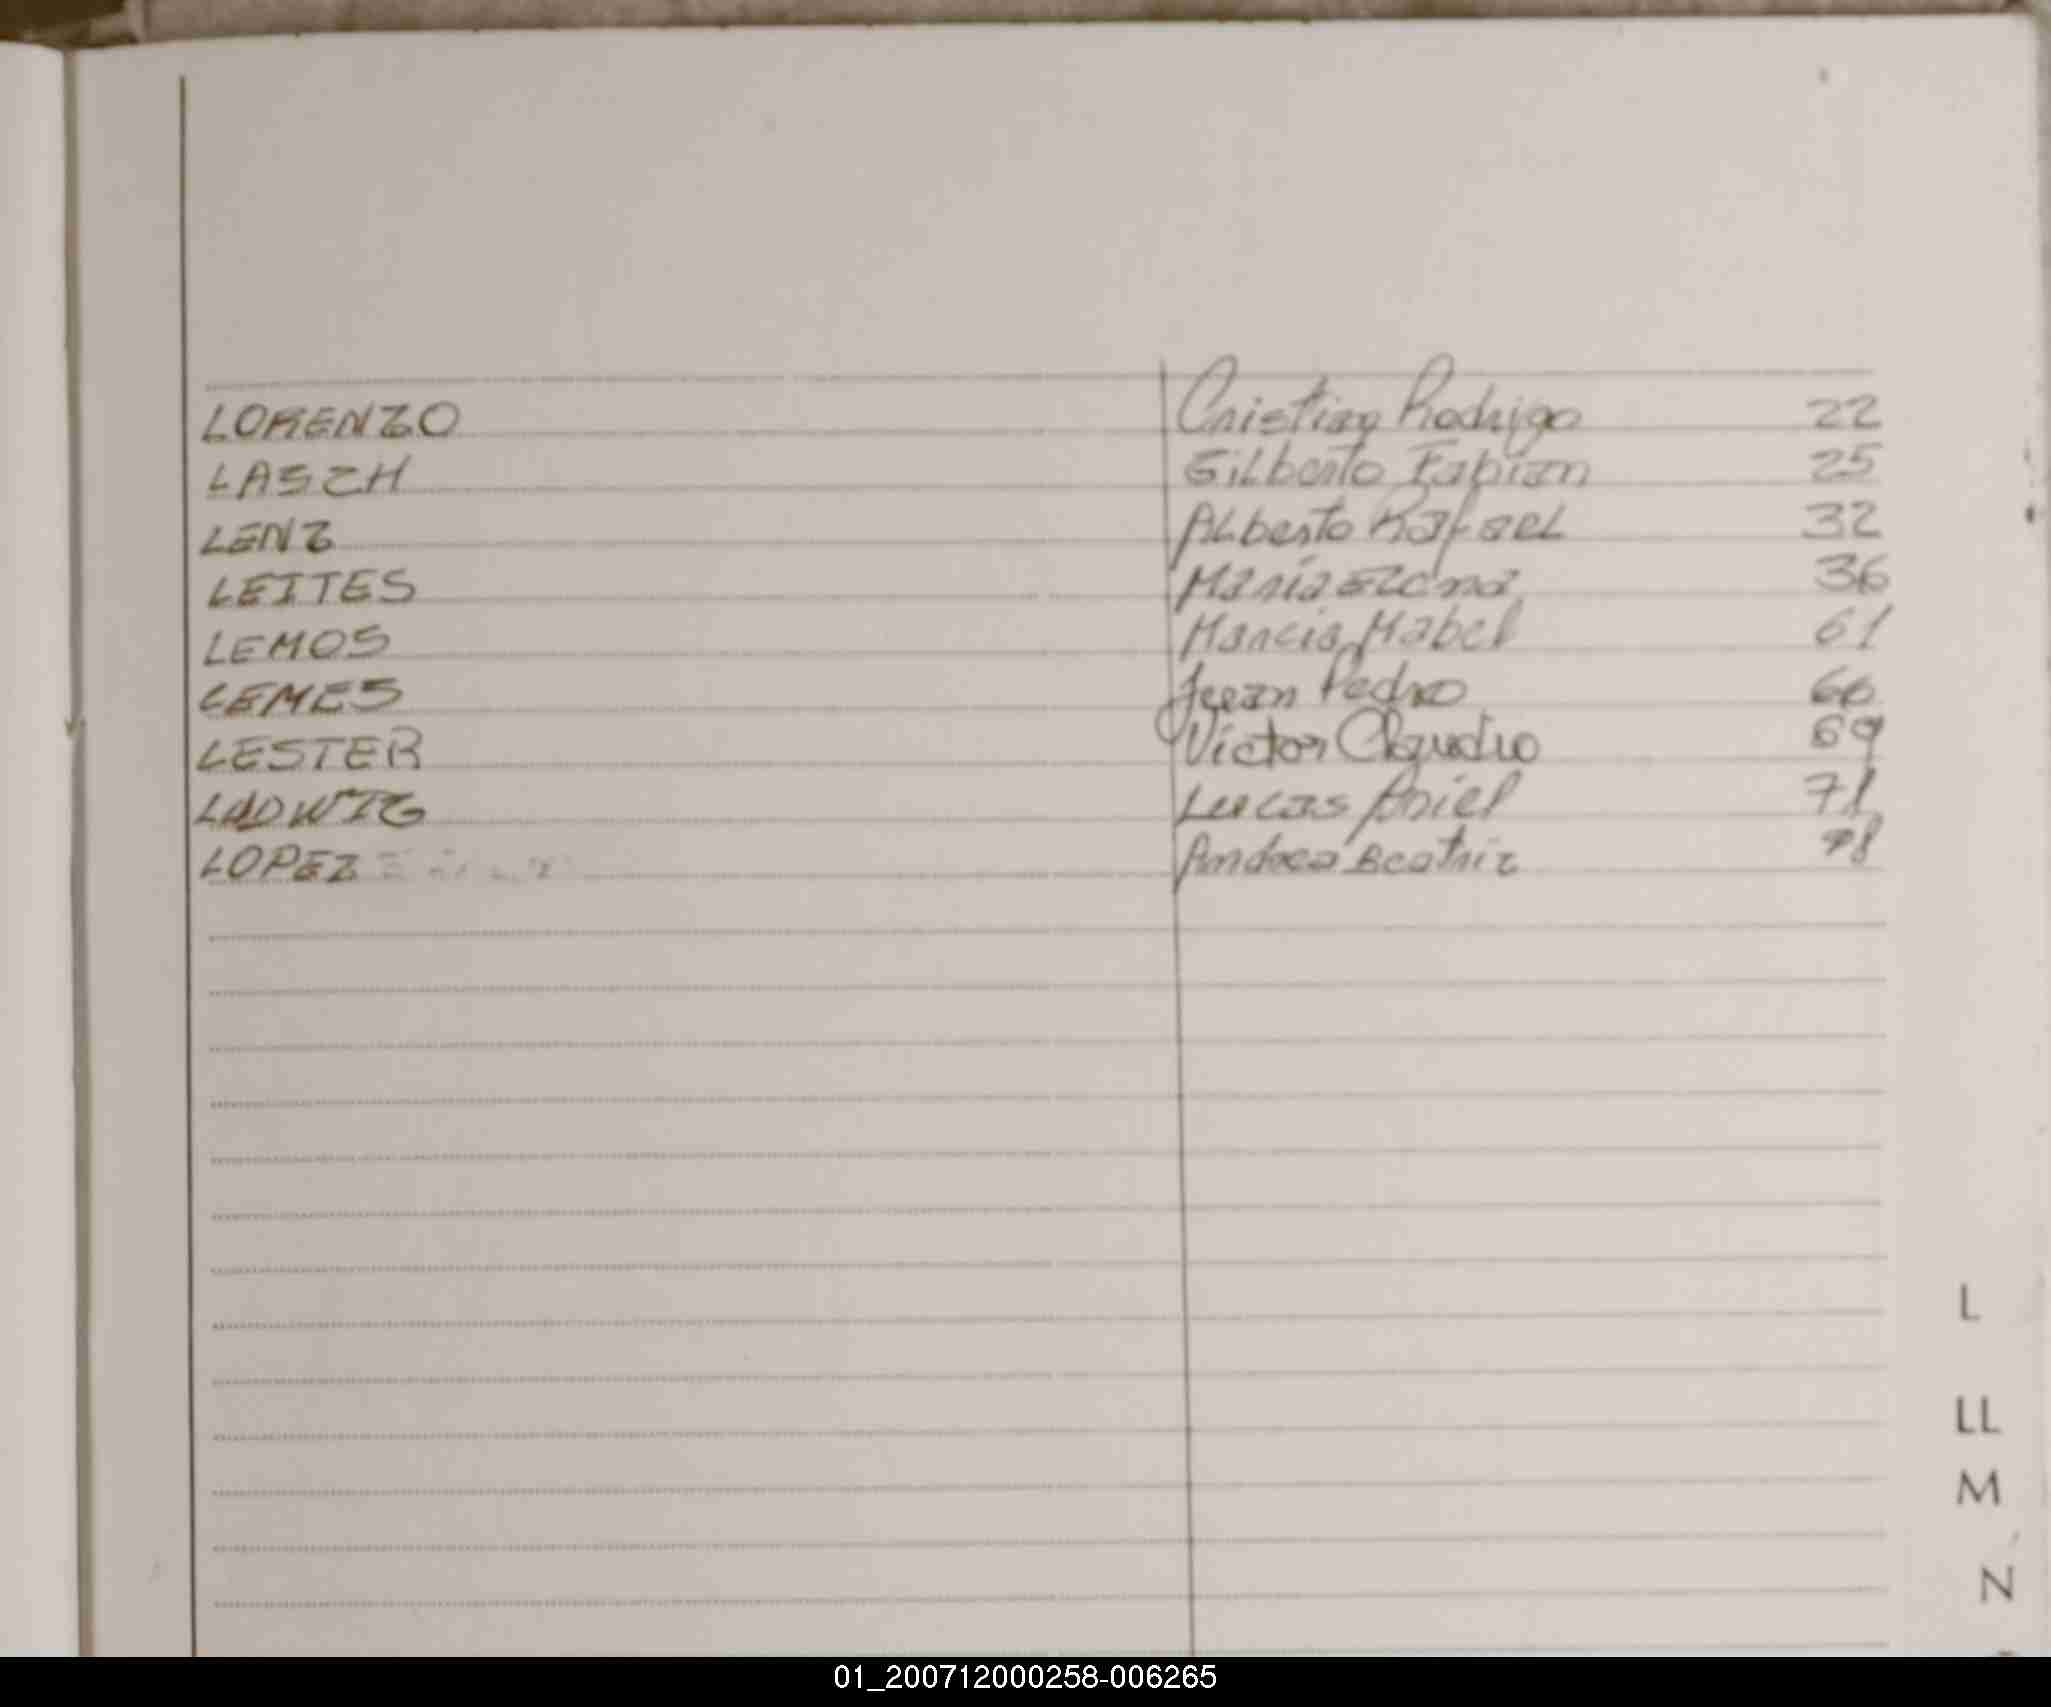 LORENZO Cristian Rodrigo 22
LASCH Gilberto Fabian 25
LENZ Alberto Rafael 32
LEITES Maria Elena 36
LEMOS Marcia Mabel 61
LEMES Juan Pedro 66
LESTER Victor Claudio 69
LADWIG Lucas Ariel 71
LOPEZ Andrea Beatriz 78
L
LL
M
N
01_200712000258-006265